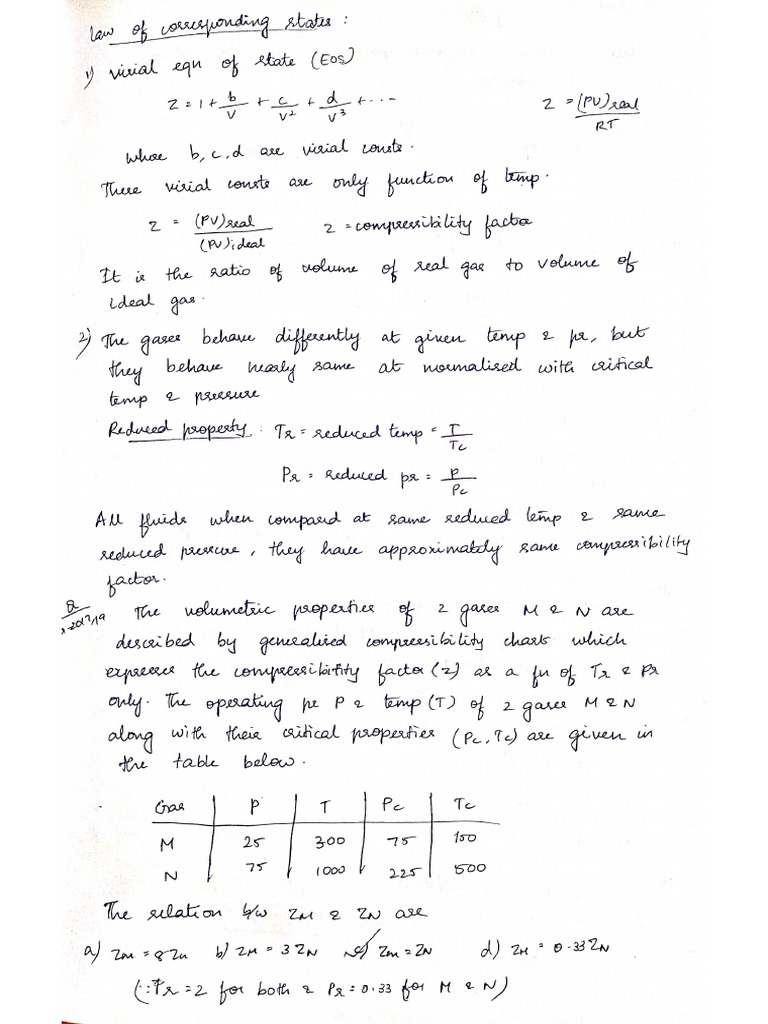 Law of corresponding states :
1) virial eqn of state (EOS)
Z = 1 + b/V + c/V² + d/V³ + ··· Z = (PV)real/RT
whose b, c, d are virial consts.
These virial consts are only function of temp.
Z = (PV)real/(PV)ideal Z = compressibility factor
It is the ratio of volume of real gas to volume of
ideal gas.
2) The gases behave differently at given temp & pr, but
they behave nearly same at normalised with critical
temp & pressure
Reduced property : Tr = reduced temp = T/Tc
Pr = reduced pr = P/Pc
All fluids when compard at same reduced temp & same
reduced pressure, they have approximately same compressibility
factor.
Q The volumetric properties of 2 gases M & N are
described by generalised compressibility charts which
expresses the compressibility factor (z) as a fn of Tr & Pr
only. The operating pr P & temp (T) of 2 gases M & N
along with their critical properties (Pc, Tc) are given in
the table below.
Gas P T Pc Tc
M 25 300 75 150
N 75 1000 225 500
The relation b/w ZM & ZN are
a) ZM = 8ZN b) ZM = 3ZN c) ZM = ZN d) ZM = 0.33ZN
(∵ Tr = 2 for both & Pr = 0.33 for M & N)